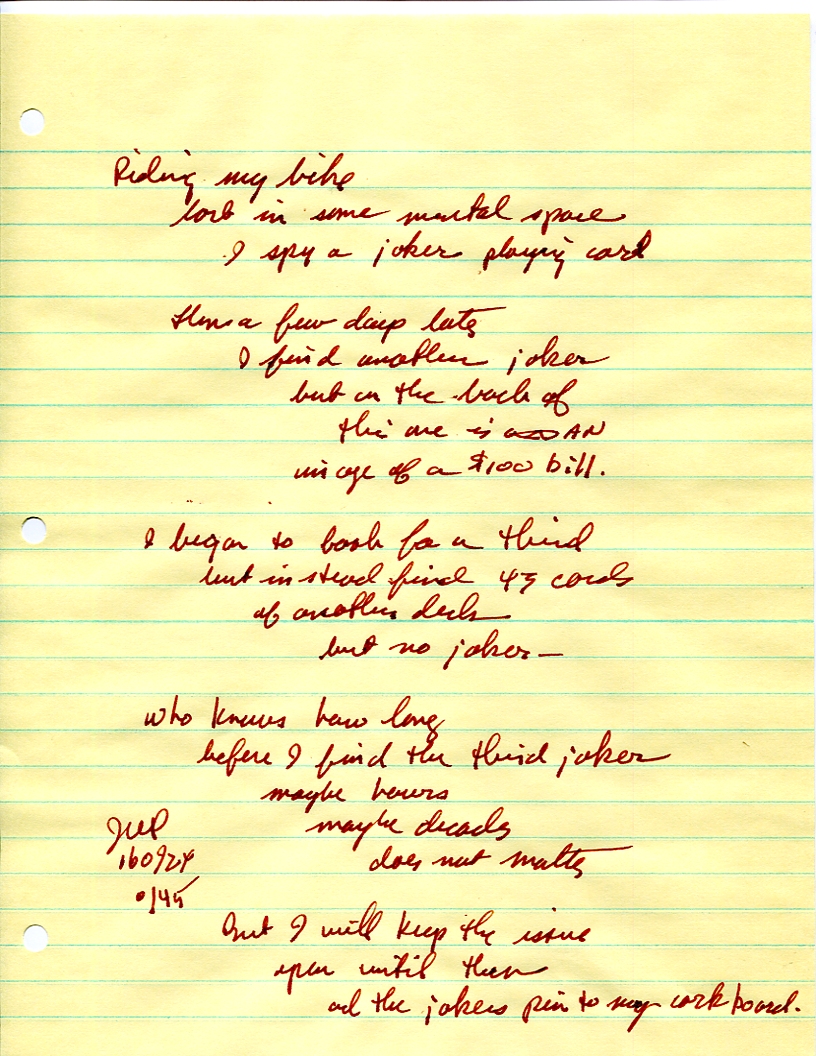 Riding my bike
lost in some mental space
I spy a joker playing card
then a few days later
I find another joker
but on the back of
this one is AN
image of a $100 bill.
I began to look for a third
but instead find 45 cards
of another deck
but no joker —
who knows how long
before I find the third joker
maybe hours
maybe decades
does not matter
JWP
160924
0145
But I will keep the issue
open until then
ad the jokers pin to my cork board.